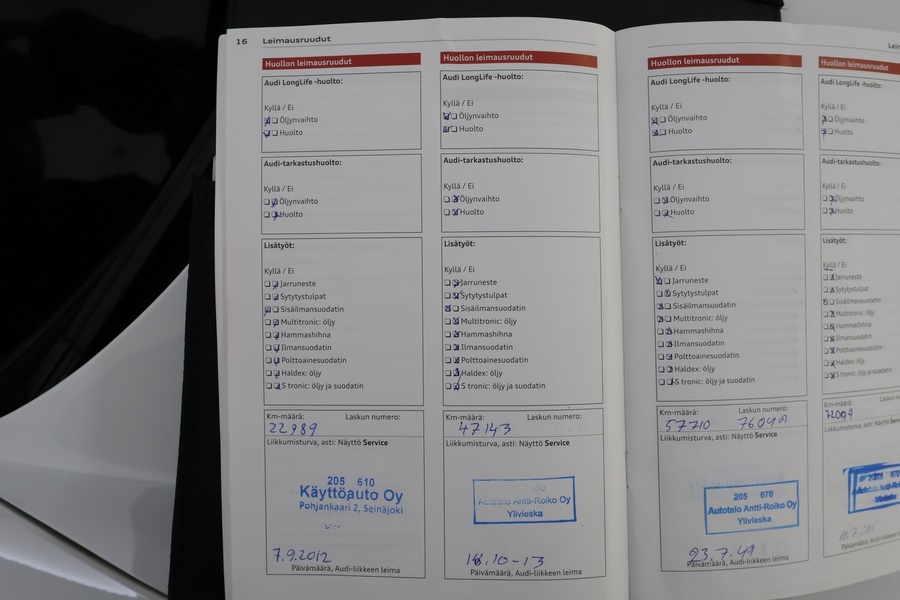 16 Leimausruudut
Huollon leimausruudut
Audi LongLife -huolto:
Kyllä / Ei
Öljynvaihto
Huolto
Audi-tarkastushuolto:
Kyllä / Ei
Öljynvaihto
Huolto
Lisätyöt:
Kyllä / Ei
Jarruneste
Sytytystulpat
Sisäilmansuodatin
Multitronic: öljy
Hammashihna
Ilmansuodatin
Polttoainesuodatin
Haldex: öljy
S tronic: öljy ja suodatin
Km-määrä: Laskun numero:
22989
Liikkumisturva, asti: Näyttö Service
205 610
Käyttöauto Oy
Pohjankaari 2, Seinäjoki
7.9.2012
Päivämäärä, Audi-liikkeen leima
Huollon leimausruudut
Audi LongLife -huolto:
Kyllä / Ei
Öljynvaihto
Huolto
Audi-tarkastushuolto:
Kyllä / Ei
Öljynvaihto
Huolto
Lisätyöt:
Kyllä / Ei
Jarruneste
Sytytystulpat
Sisäilmansuodatin
Multitronic: öljy
Hammashihna
Ilmansuodatin
Polttoainesuodatin
Haldex: öljy
S tronic: öljy ja suodatin
Km-määrä: Laskun numero:
47143
Liikkumisturva, asti: Näyttö Service
Autotalo Antti-Roiko Oy
Ylivieska
18.10-13
Päivämäärä, Audi-liikkeen leima
Huollon leimausruudut
Audi LongLife -huolto:
Kyllä / Ei
Öljynvaihto
Huolto
Audi-tarkastushuolto:
Kyllä / Ei
Öljynvaihto
Huolto
Lisätyöt:
Kyllä / Ei
Jarruneste
Sytytystulpat
Sisäilmansuodatin
Multitronic: öljy
Hammashihna
Ilmansuodatin
Polttoainesuodatin
Haldex: öljy
S tronic: öljy ja suodatin
Km-määrä: Laskun numero:
57710
Liikkumisturva, asti: Näyttö Service
205 670
Autotalo Antti-Roiko Oy
Ylivieska
Päivämäärä, Audi-liikkeen leima
Huollon leimausruudut
Audi LongLife -huolto:
Kyllä / Ei
Öljynvaihto
Huolto
Audi-tarkastushuolto:
Kyllä / Ei
Öljynvaihto
Huolto
Lisätyöt:
Kyllä / Ei
Jarruneste
Sytytystulpat
Sisäilmansuodatin
Multitronic: öljy
Hammashihna
Ilmansuodatin
Polttoainesuodatin
Haldex: öljy
S tronic: öljy ja suodatin
Km-määrä:
72009
Liikkumisturva, asti: Näyttö
Päivämäärä, Audi-liikkeen